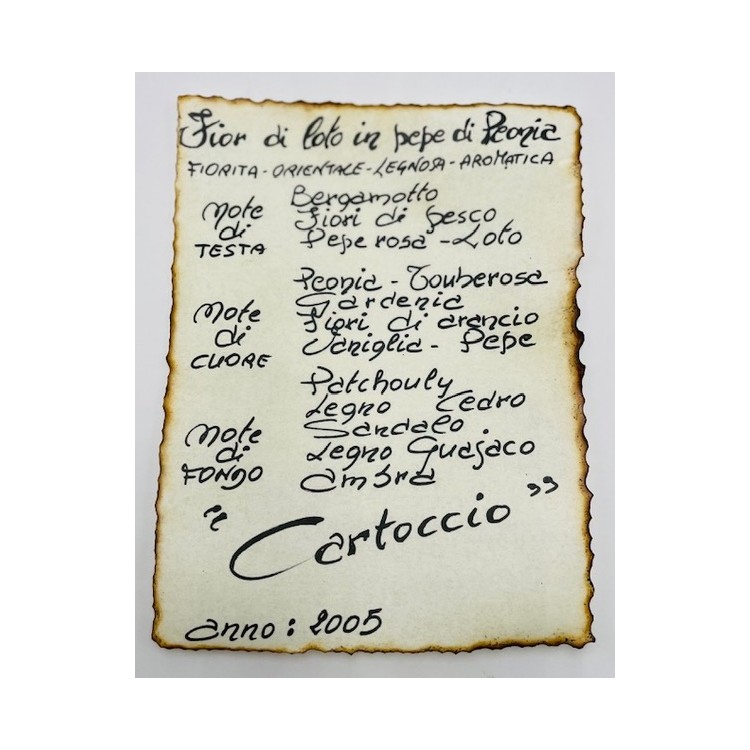 Fior di loto in pepe di Peonia
FIORITA - ORIENTALE - LEGNOSA - AROMATICA
Note di TESTA
Bergamotto
Fiori di pesco
Pepe rosa - Loto
Note di CUORE
Peonia - Touberosa
Gardenia
Fiori di arancio
Vaniglia - Pepe
Note di FONDO
Patchouly
Legno Cedro
Sandalo
Legno Guajaco
ambra
"Cartoccio"
anno: 2005